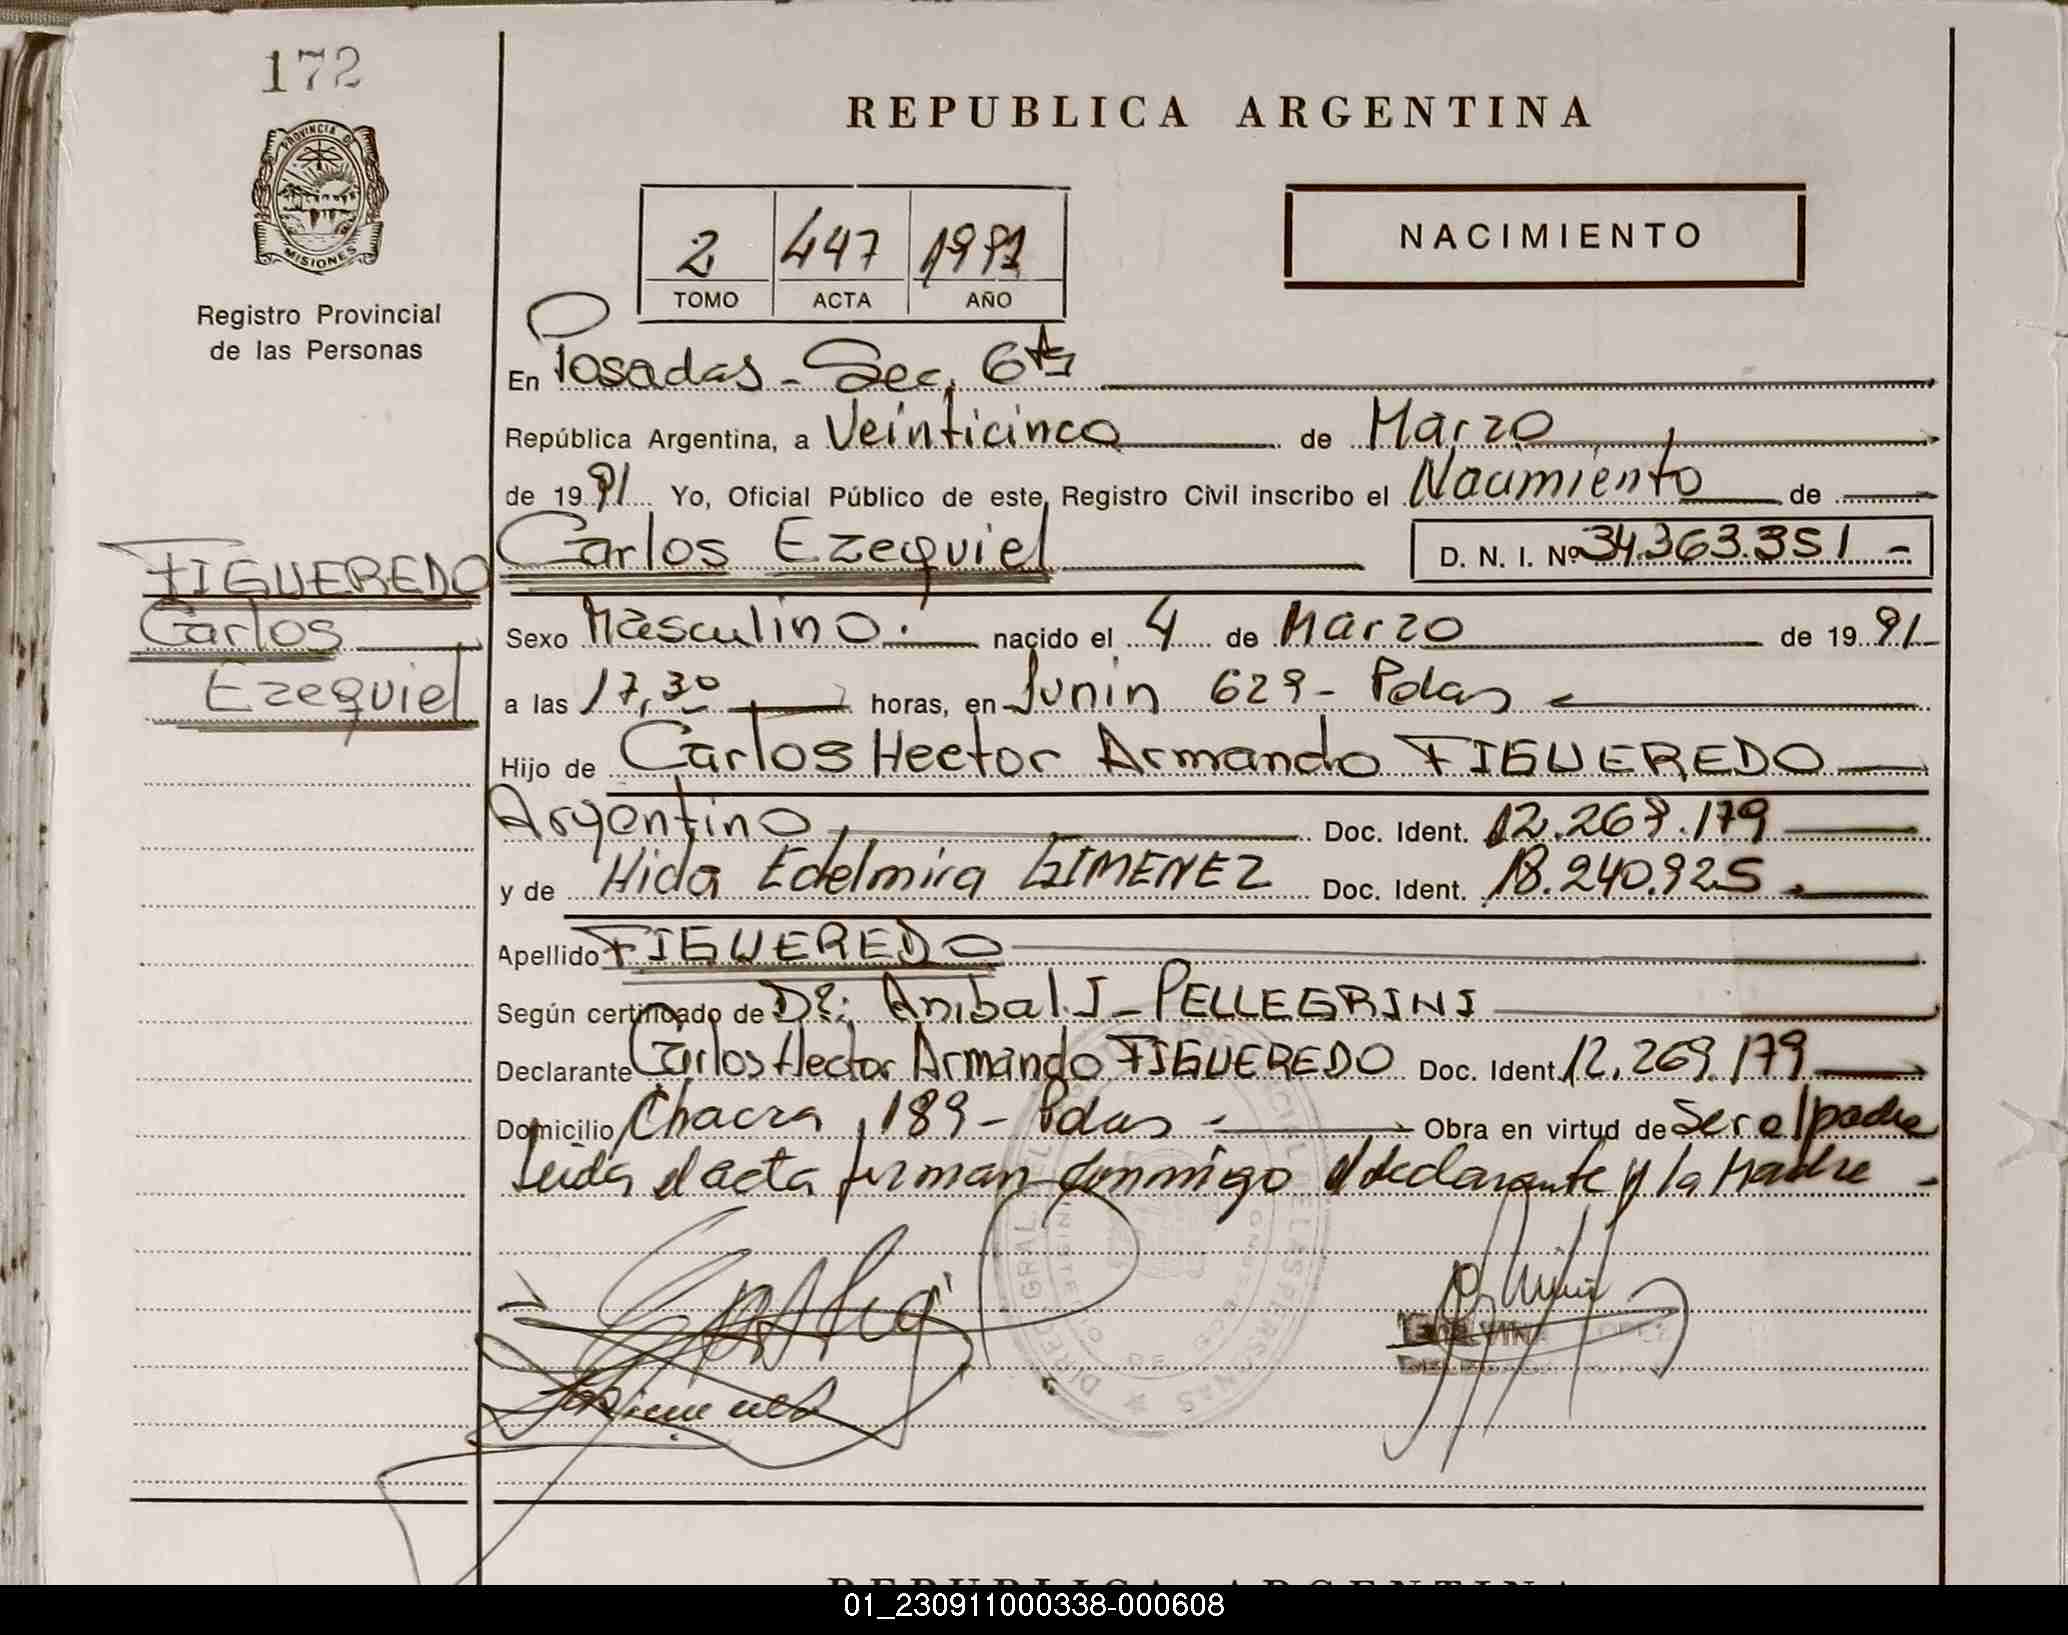 172
PROVINCIA DE
MISIONES
Registro Provincial
de las Personas
REPUBLICA ARGENTINA
NACIMIENTO
2 447 1991
TOMO ACTA AÑO
En Posadas - Sec. 6ta
República Argentina, a Veinticinco de Marzo
de 1991 Yo, Oficial Público de este Registro Civil inscribo el Nacimiento de
FIGUEREDO Carlos Ezequiel D. N. I. Nº 34.363.351 -
Carlos
Ezequiel
Sexo Masculino. nacido el 4 de Marzo de 1991
a las 17,30 horas, en Junin 629 - Pdas
Hijo de Carlos Hector Armando FIGUEREDO
Argentino Doc. Ident. 12.269.179
y de Hida Edelmira GIMENEZ Doc. Ident. 18.240.925
Apellido FIGUEREDO
Según certificado de Dr. Anibal J. PELLEGRINI
Declarante Carlos Hector Armando FIGUEREDO Doc. Ident. 12.269.179
Domicilio Chacra 189 - Pdas - Obra en virtud de ser el padre
Leida el acta firman conmigo el declarante y la Madre -
REPUBLICA ARGENTINA
01_230911000338-000608